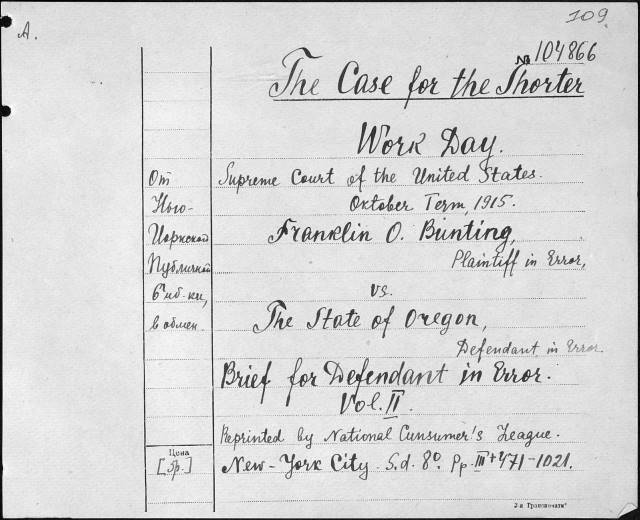 A.
109.
№ 104866
The Case for the Shorter
Work Day.
От Supreme Court of the United States.
Нью- Oktober Term, 1915.
Иоркской Franklin O. Bunting,
Публичной Plaintiff in Error,
биб-ки, vs.
в обмен. The State of Oregon,
Defendant in Error.
Brief for Defendant in Error.
Vol. II.
Reprinted by National Cunsumer's League.
Цена
[5р.] New-York City. S.d. 8º. Pp. III + 471-1021.
2-я Гранпечать